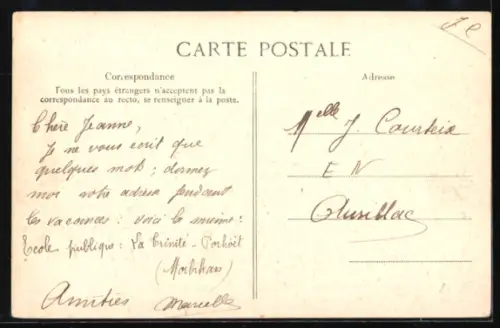 CARTE POSTALE
Correspondance
Tous les pays étrangers n'acceptent pas la
correspondance au recto, se renseigner à la poste.
Chère Jeanne,
Je ne vous écrit que
quelques mots ; donnez
moi votre adresse pendant
les vacances : voici la mienne :
Ecole publique : La Trinité - Porhoët
(Morbihan)
Amitiés Marcelle
Adresse
Melle J. Courteix
E N
Aurillac